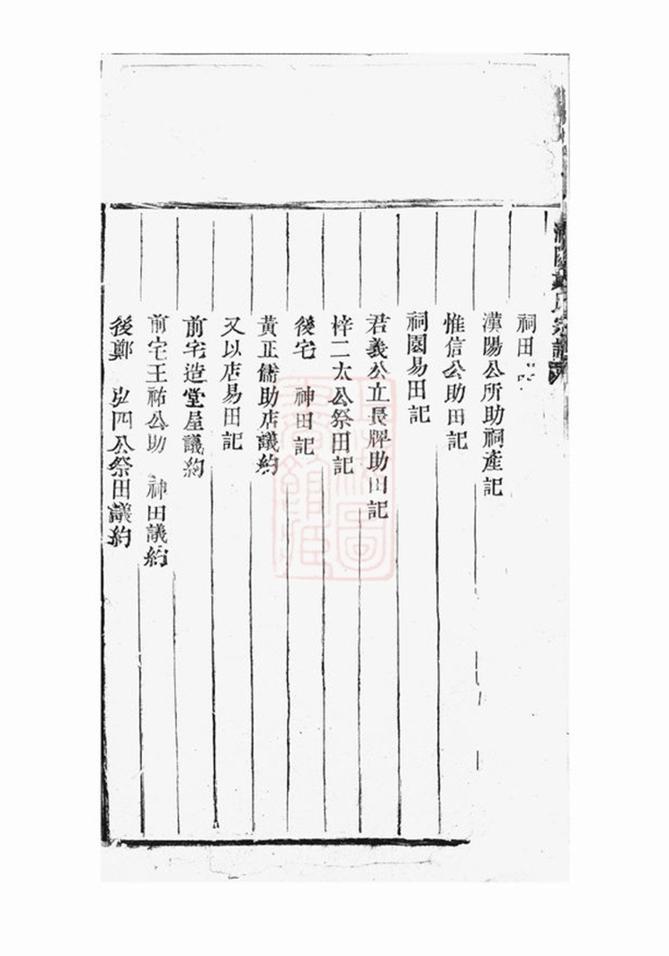 祠田
漢陽公所助祠產記
惟信公助田記
祠園易田記
君義公立長牌助田記
梓二太公祭田記
後宅　神田記
黃正儒助店議約
又以店易田記
前宅造堂屋議約
前宅王祐公助　神田議約
後鄭　弘四公祭田議約